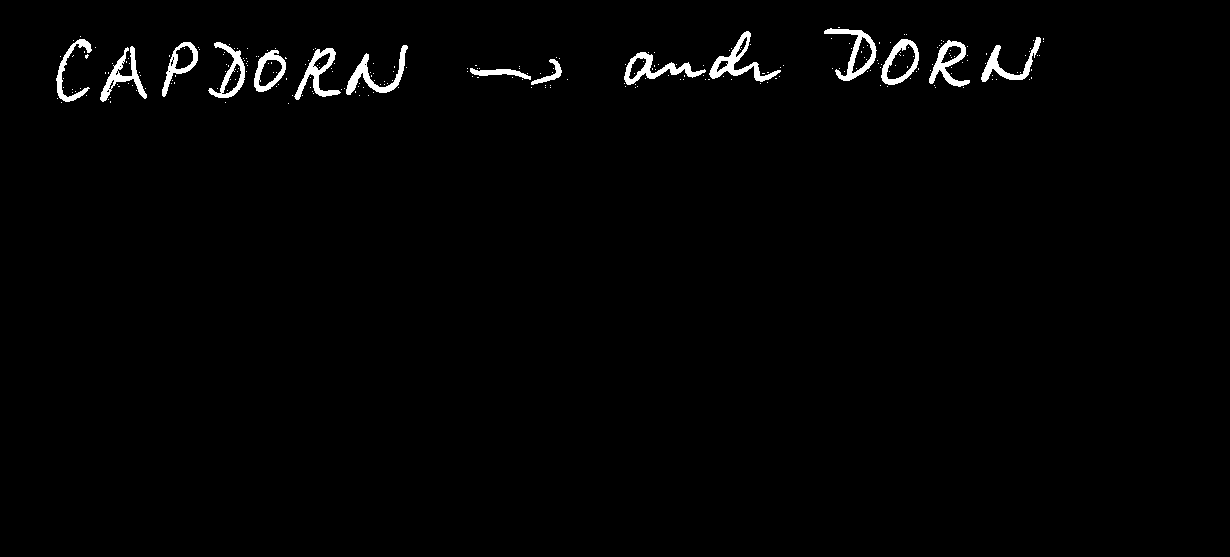 CAPDORN → auch DORN